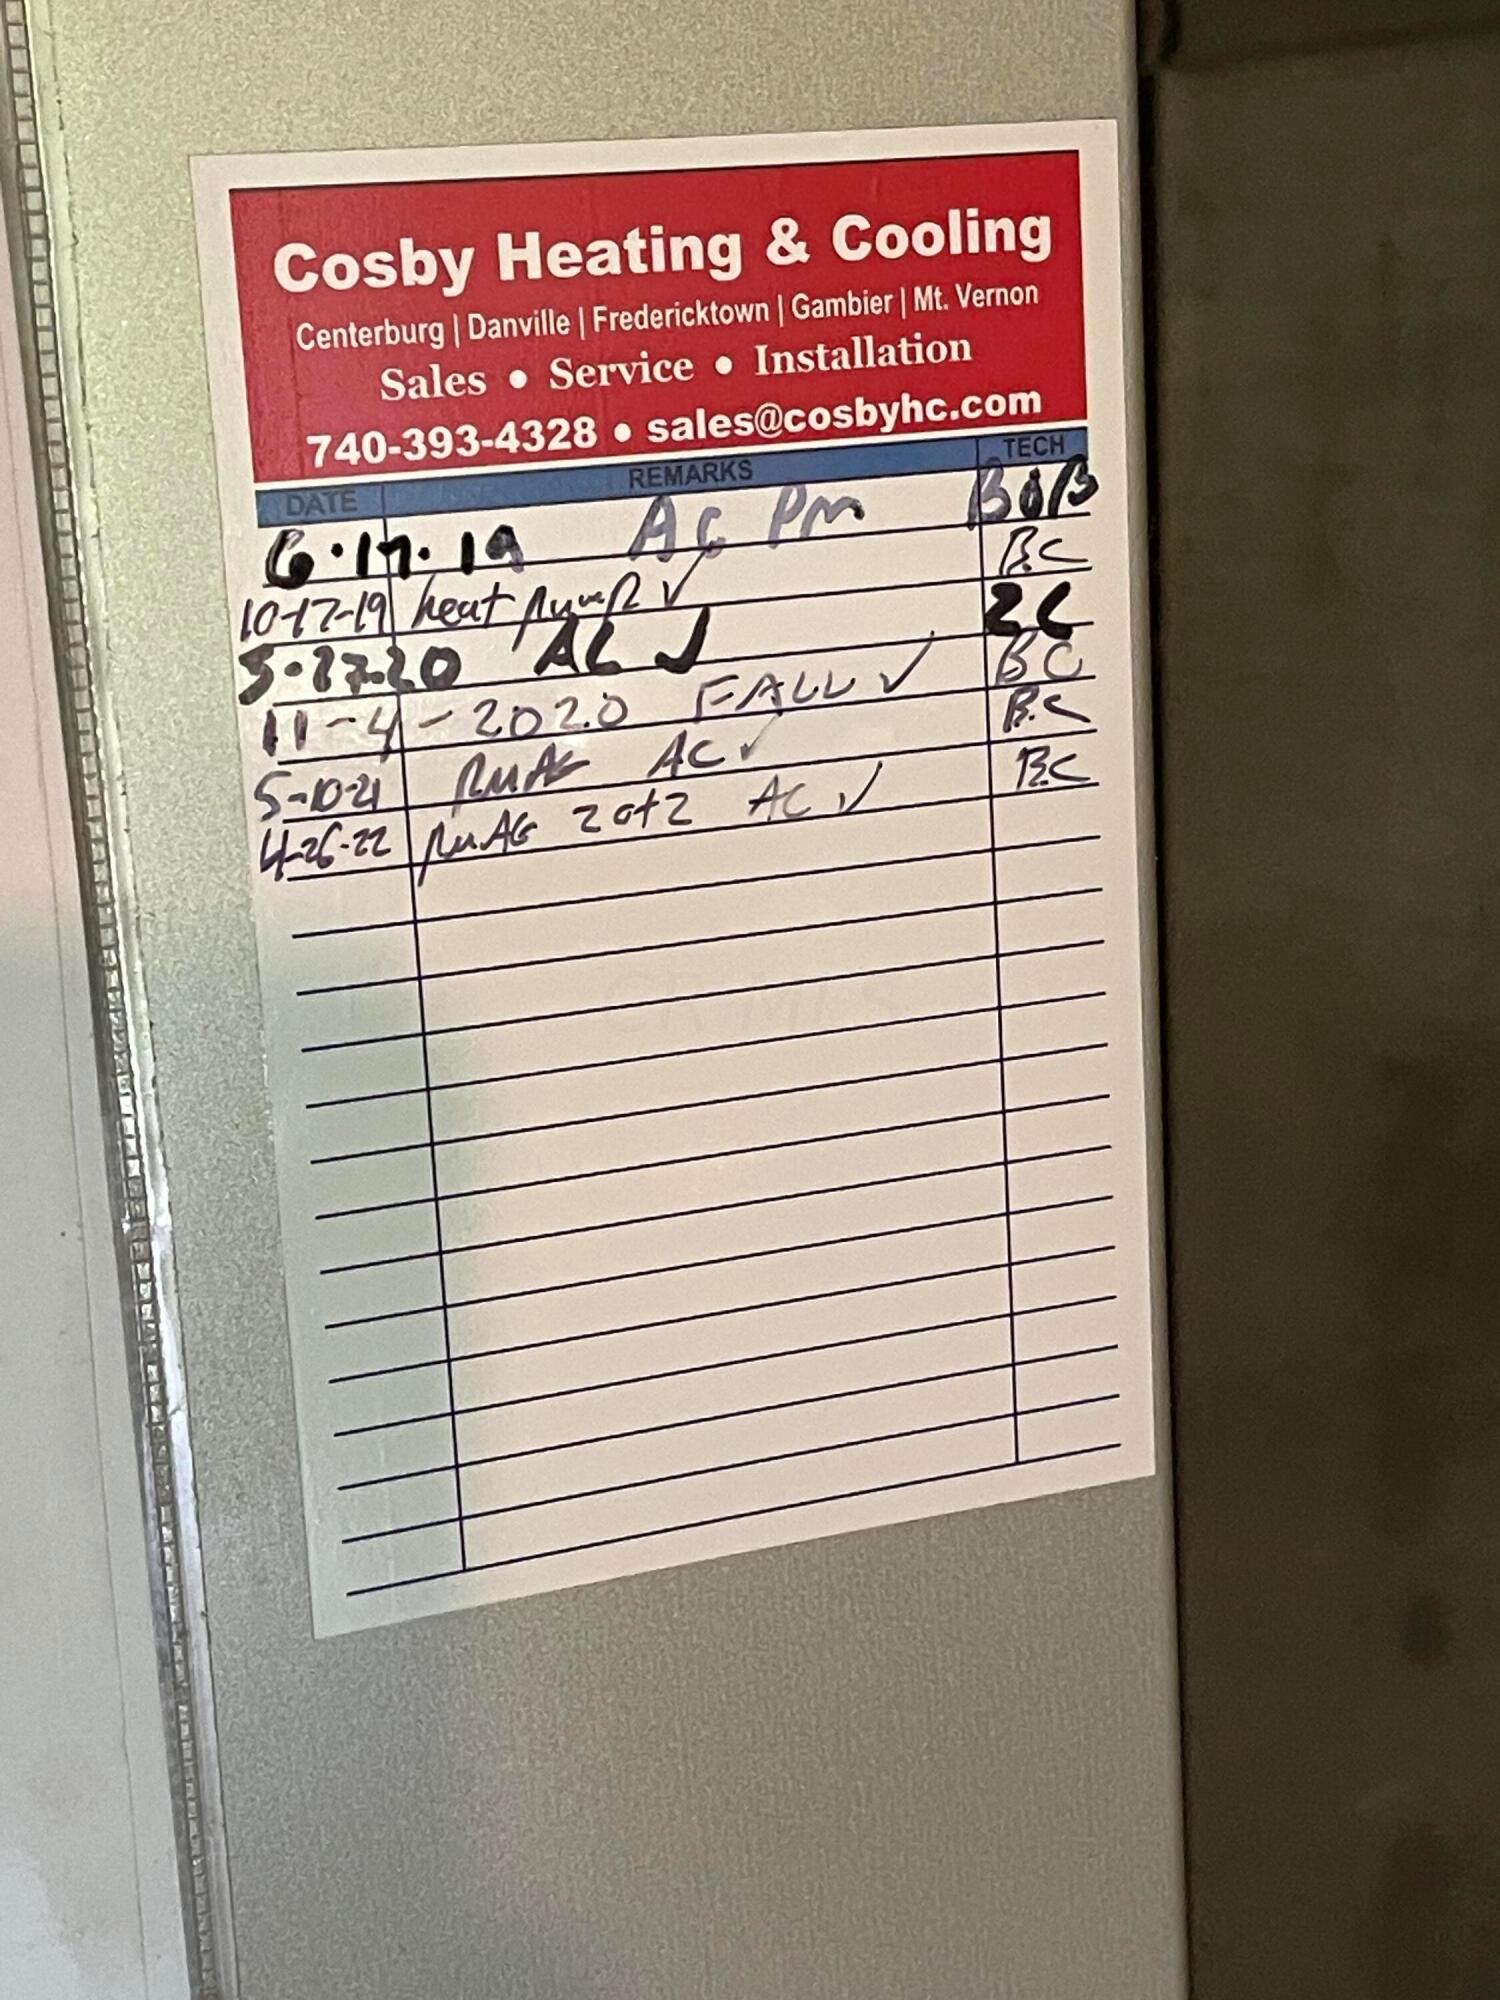 Cosby Heating & Cooling
Centerburg | Danville | Fredericktown | Gambier | Mt. Vernon
Sales • Service • Installation
740-393-4328 • sales@cosbyhc.com
DATE REMARKS TECH
6.17.19 AC PM BOB
10-17-19 heat pump ✓ B.C
AC ✓
11-4-2020 FALL ✓ BC
5-10-21 AC ✓ B.C
4-26-22 2 of 2 AC ✓ B.C